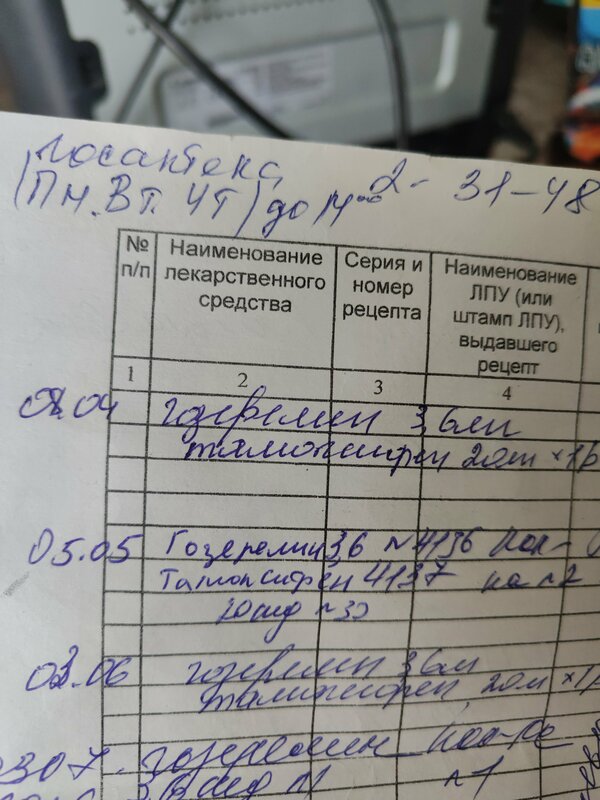 госаптека
(Пн. Вт. Чт) до 14⁰⁰ 2-31-48
№ п/п
Наименование лекарственного средства
Серия и номер рецепта
Наименование ЛПУ (или штамп ЛПУ), выдавшего рецепт
1 2 3 4
04 гозерелин 3,6мг
тамоксифен 20мг ×1р
05.05 Гозерелин 3,6 №4136 кол-
Тамоксифен 4137 на №2
20мг №30
03.06 гозерелин 3,6мг
тамоксифен 20мг ×1р
0307 гозерелин кол-во
3,6мг №1 №1